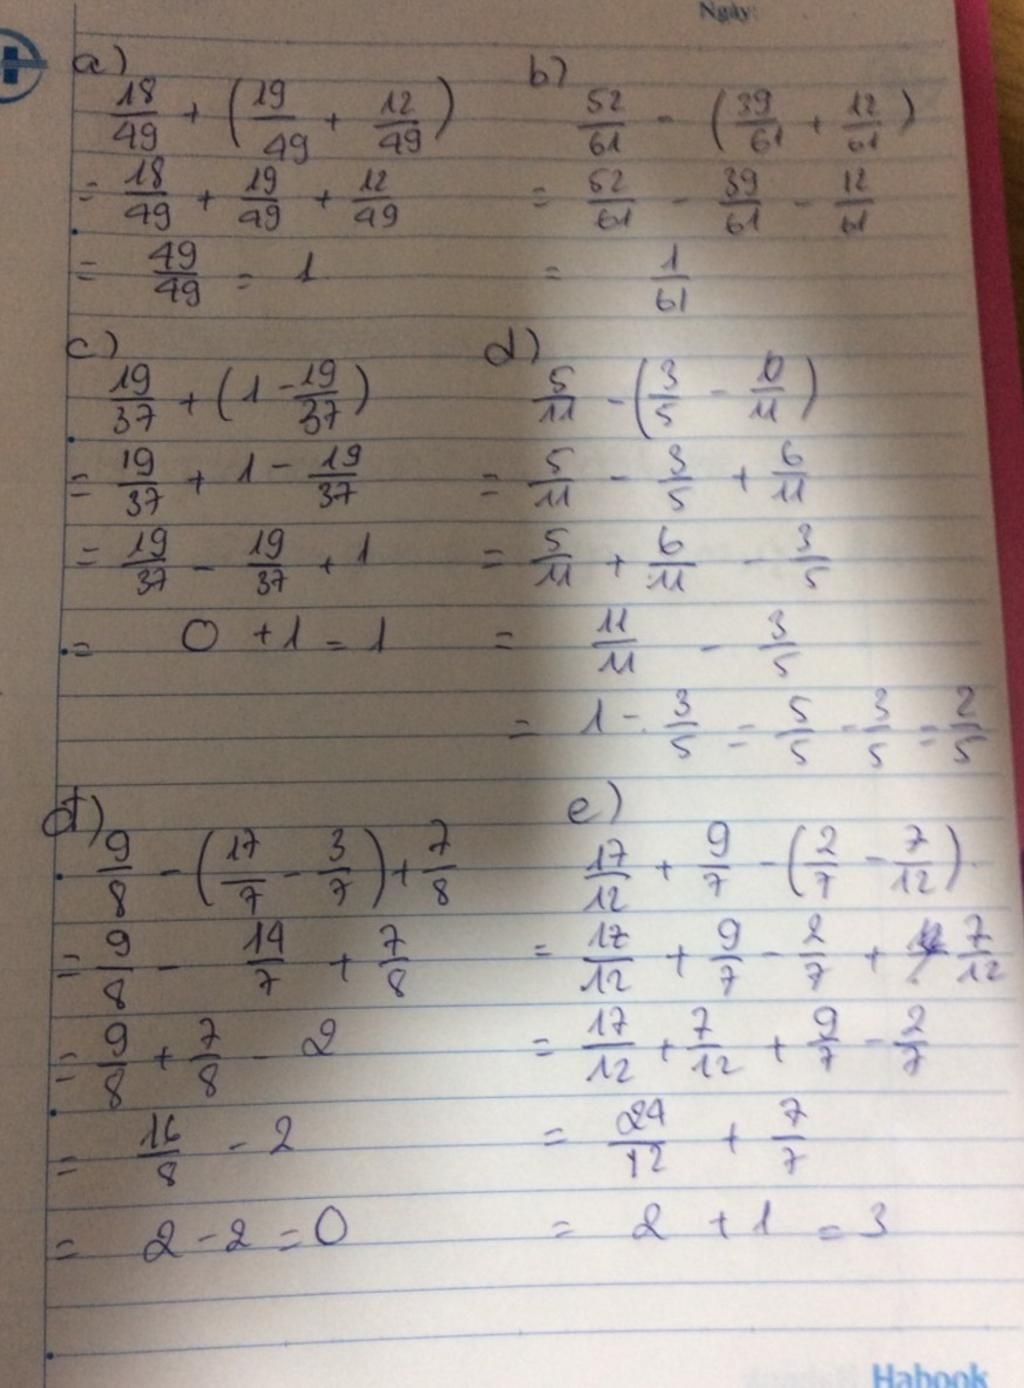 Ngày:
a)
18/49 + (19/49 + 12/49)
= 18/49 + 19/49 + 12/49
= 49/49 = 1
b)
52/61 - (39/61 + 12/61)
= 52/61 - 39/61 - 12/61
= 1/61
c)
19/37 + (1 - 19/37)
= 19/37 + 1 - 19/37
= 19/37 - 19/37 + 1
= 0 + 1 = 1
d)
5/11 - (3/5 - 6/11)
= 5/11 - 3/5 + 6/11
= 5/11 + 6/11 - 3/5
= 11/11 - 3/5
= 1 - 3/5 = 5/5 - 3/5 = 2/5
đ)
9/8 - (17/7 - 3/7) + 7/8
= 9/8 - 14/7 + 7/8
= 9/8 + 7/8 - 2
= 16/8 - 2
= 2 - 2 = 0
e)
17/12 + 9/7 - (2/7 - 7/12)
= 17/12 + 9/7 - 2/7 + 7/12
= 17/12 + 7/12 + 9/7 - 2/7
= 24/12 + 7/7
= 2 + 1 = 3
Habook